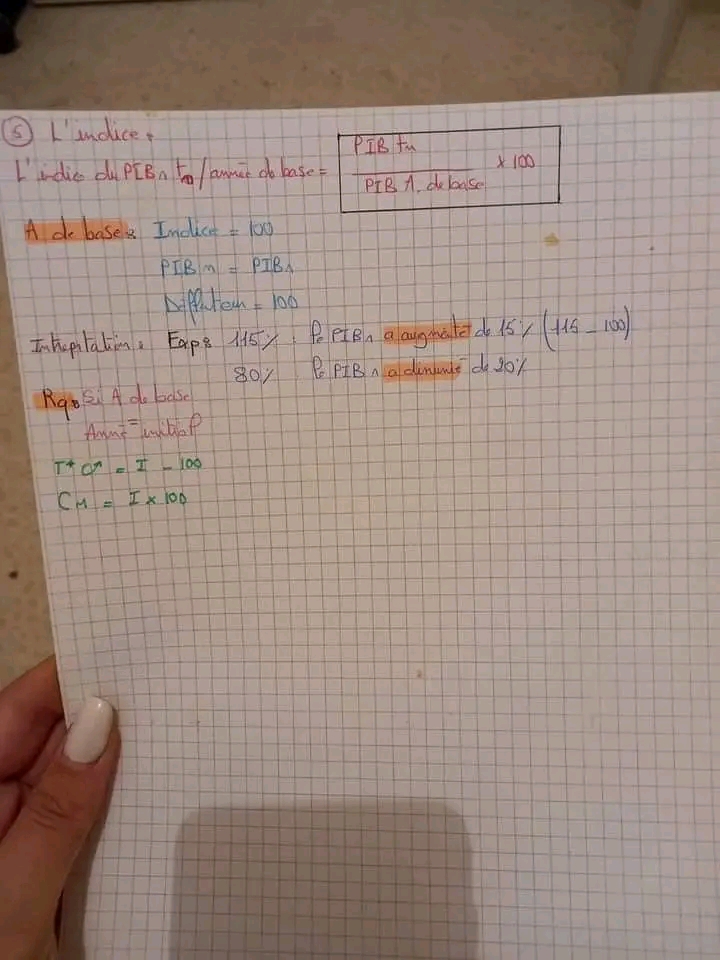 5 L'indice :
L'indic du PIBr tn / année de base = PIB tn / PIB A. de base × 100
A de base : Indice = 100
PIBn = PIBr
Déflateur = 100
Exp : 115% : le PIBr a augmenté de 15% (115 - 100)
80% le PIBr a diminué de 20%
Rq : Si A de base
= initial
T* ♂ = I - 100
CM = I × 100